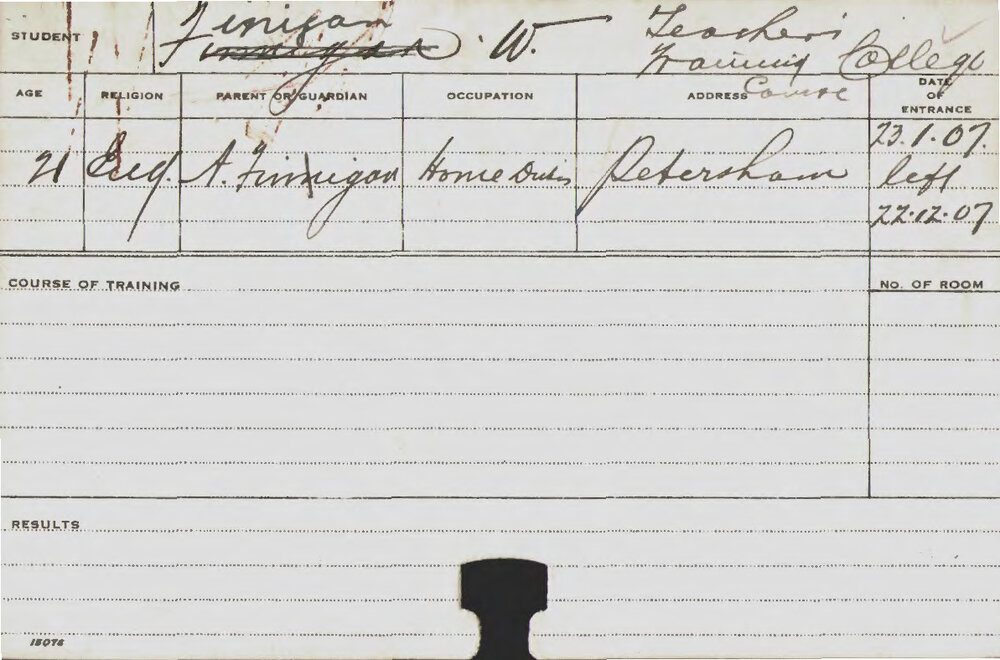 STUDENT Finigan W. Teachers
Finnegan Training College
Course
AGE RELIGION PARENT OR GUARDIAN OCCUPATION ADDRESS DATE OF ENTRANCE
23.1.07.
21 Eng. A. Finnigan Home Duties Petersham left
22.12.07
COURSE OF TRAINING No. OF ROOM
RESULTS
15076